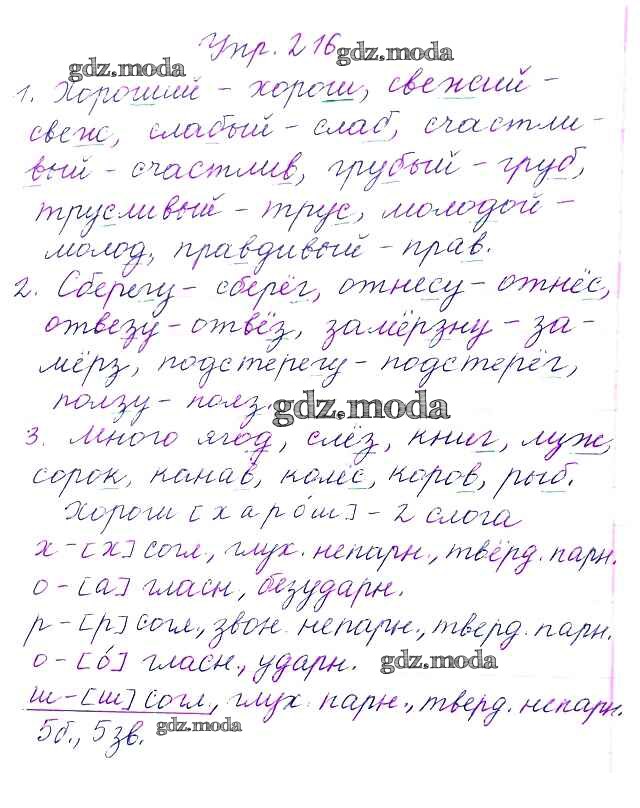 Упр. 216
gdz.moda
gdz.moda
1. Хороший – хорош, свежий –
свеж, слабый – слаб, счастли-
вый – счастлив, грубый – груб,
трусливый – трус, молодой –
молод, правдивый – прав.
2. Сберегу – сберёг, отнесу – отнёс,
отвезу – отвёз, замёрзну – за-
мёрз, подстерегу – подстерёг,
ползу – полз.
gdz.moda
3. Много ягод, слёз, книг, луж,
сорок, канав, колёс, коров, рыб.
Хорош [харо́ш] – 2 слога
х – [х] согл., глух. непарн., твёрд. парн.
о – [а] гласн., безударн.
р – [р] согл., звон. непарн., тверд. парн.
о – [о́] гласн., ударн.
gdz.moda
ш – [ш] согл., глух. парн., тверд. непарн.
5б., 5 зв.
gdz.moda